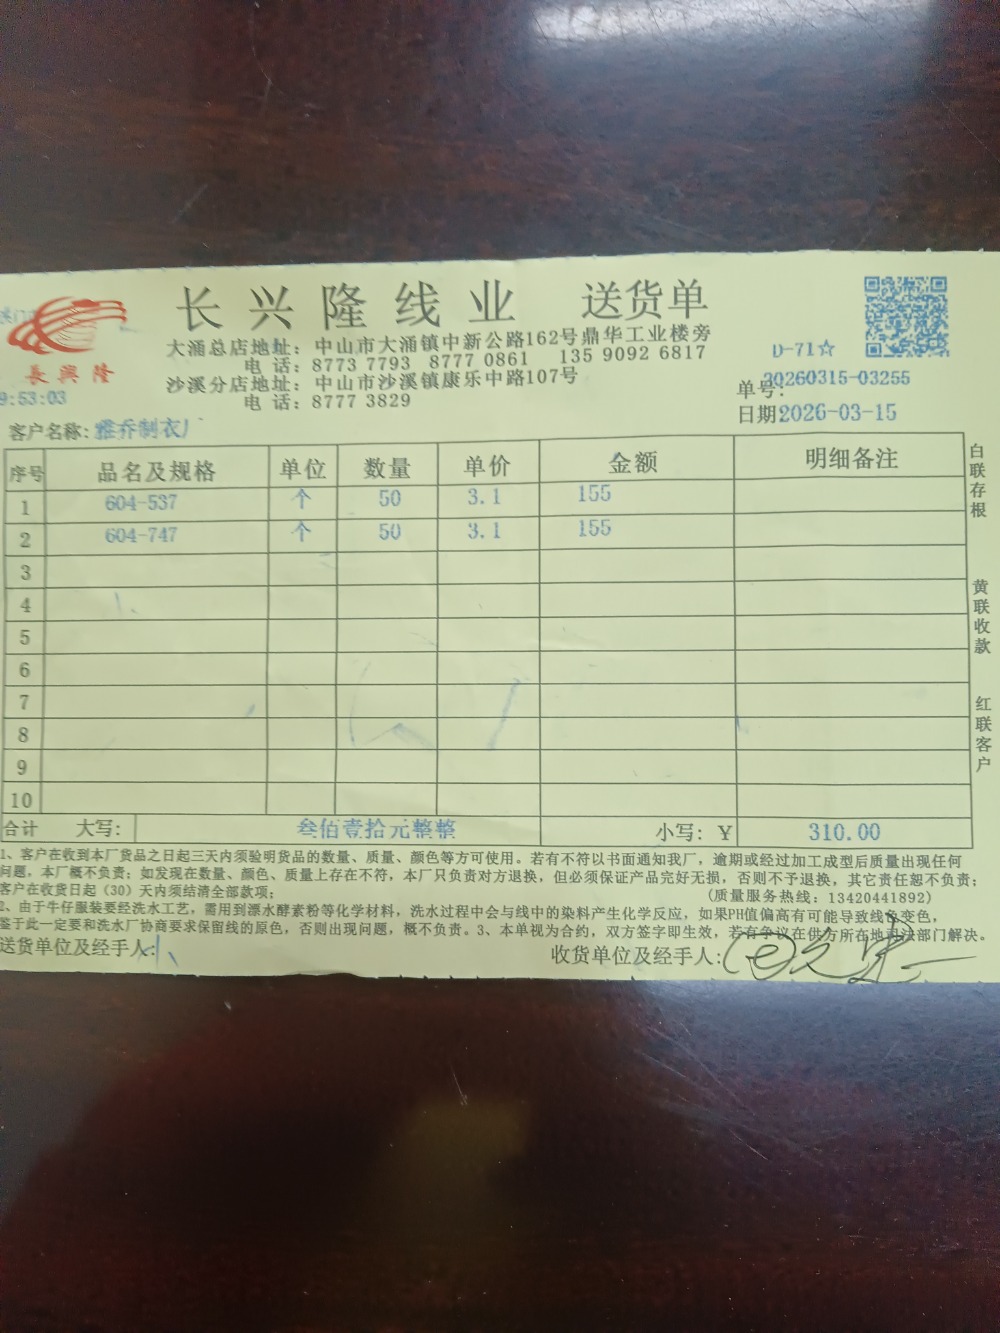 长兴隆线业 送货单
長興隆
大涌总店地址：中山市大涌镇中新公路162号鼎华工业楼旁
电 话：8773 7793 8777 0861 135 9092 6817
沙溪分店地址：中山市沙溪镇康乐中路107号
电 话：8777 3829
D-71☆
9:53:03
单号:20260315-03255
日期2026-03-15
客户名称:雅乔制衣厂
序号 品名及规格 单位 数量 单价 金额 明细备注
1 604-537 个 50 3.1 155
2 604-747 个 50 3.1 155
3
4
5
6
7
8
9
10
合计 大写: 叁佰壹拾元整整 小写: ¥ 310.00
白联存根
黄联收款
红联客户
1、客户在收到本厂货品之日起三天内须验明货品的数量、质量、颜色等方可使用。若有不符以书面通知我厂，逾期或经过加工成型后质量出现任何
问题，本厂概不负责；如发现在数量、颜色、质量上存在不符，本厂只负责对方退换，但必须保证产品完好无损，否则不予退换，其它责任恕不负责；
客户在收货日起（30）天内须结清全部款项； (质量服务热线：13420441892)
2、由于牛仔服装要经洗水工艺，需用到漂水酵素粉等化学材料，洗水过程中会与线中的染料产生化学反应，如果PH值偏高有可能导致线色变色，
鉴于此一定要和洗水厂协商要求保留线的原色，否则出现问题，概不负责。3、本单视为合约，双方签字即生效，若有争议在供方所在地司法部门解决。
送货单位及经手人: 收货单位及经手人: